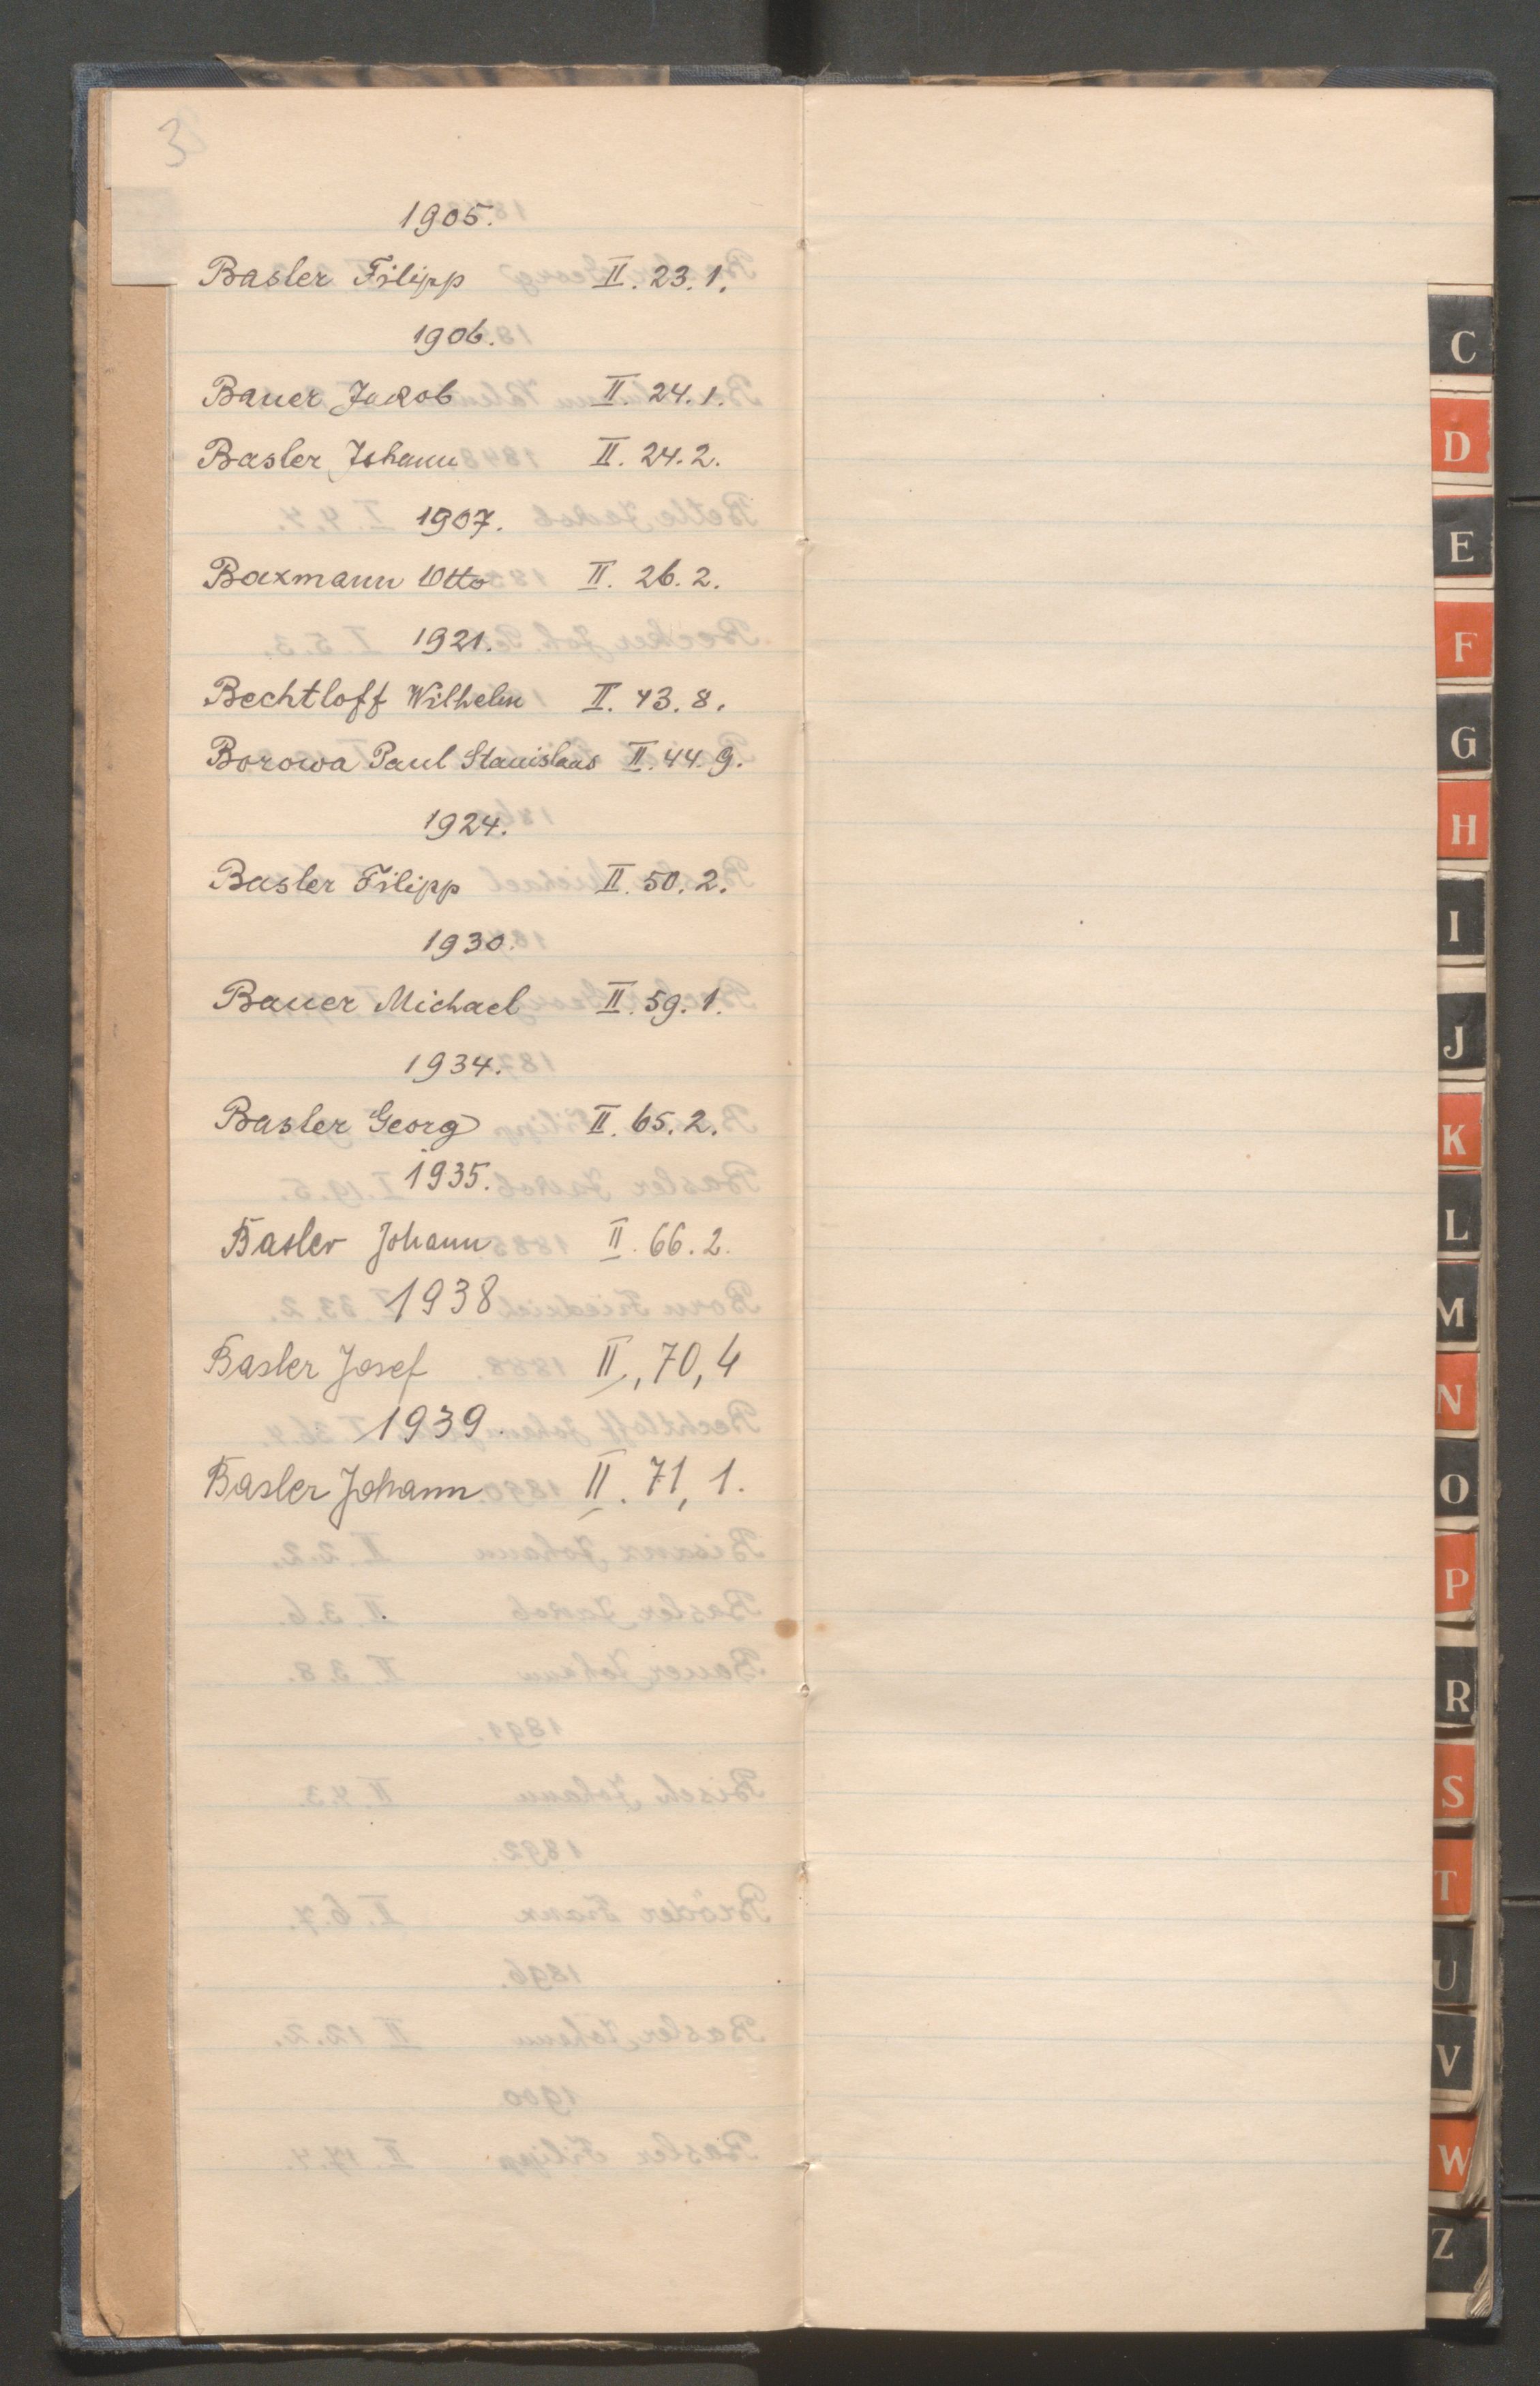 3
1905.
Basler Filipp II. 23. 1.
1906.
Bauer Jakob II. 24. 1.
Basler Johann II. 24. 2.
1907.
Baxmann Otto II. 26. 2.
1921.
Bechtloff Wilhelm II. 43. 8.
Borowa Paul Stanislaus II. 44. 9.
1924.
Basler Filipp II. 50. 2.
1930.
Bauer Michael II. 59. 1.
1934.
Basler Georg II. 65. 2.
1935.
Basler Johann II. 66. 2.
1938
Basler Josef II, 70, 4
1939.
Basler Johann II. 71, 1.
C
D
E
F
G
H
I
J
K
L
M
N
O
P
R
S
T
U
V
W
Z